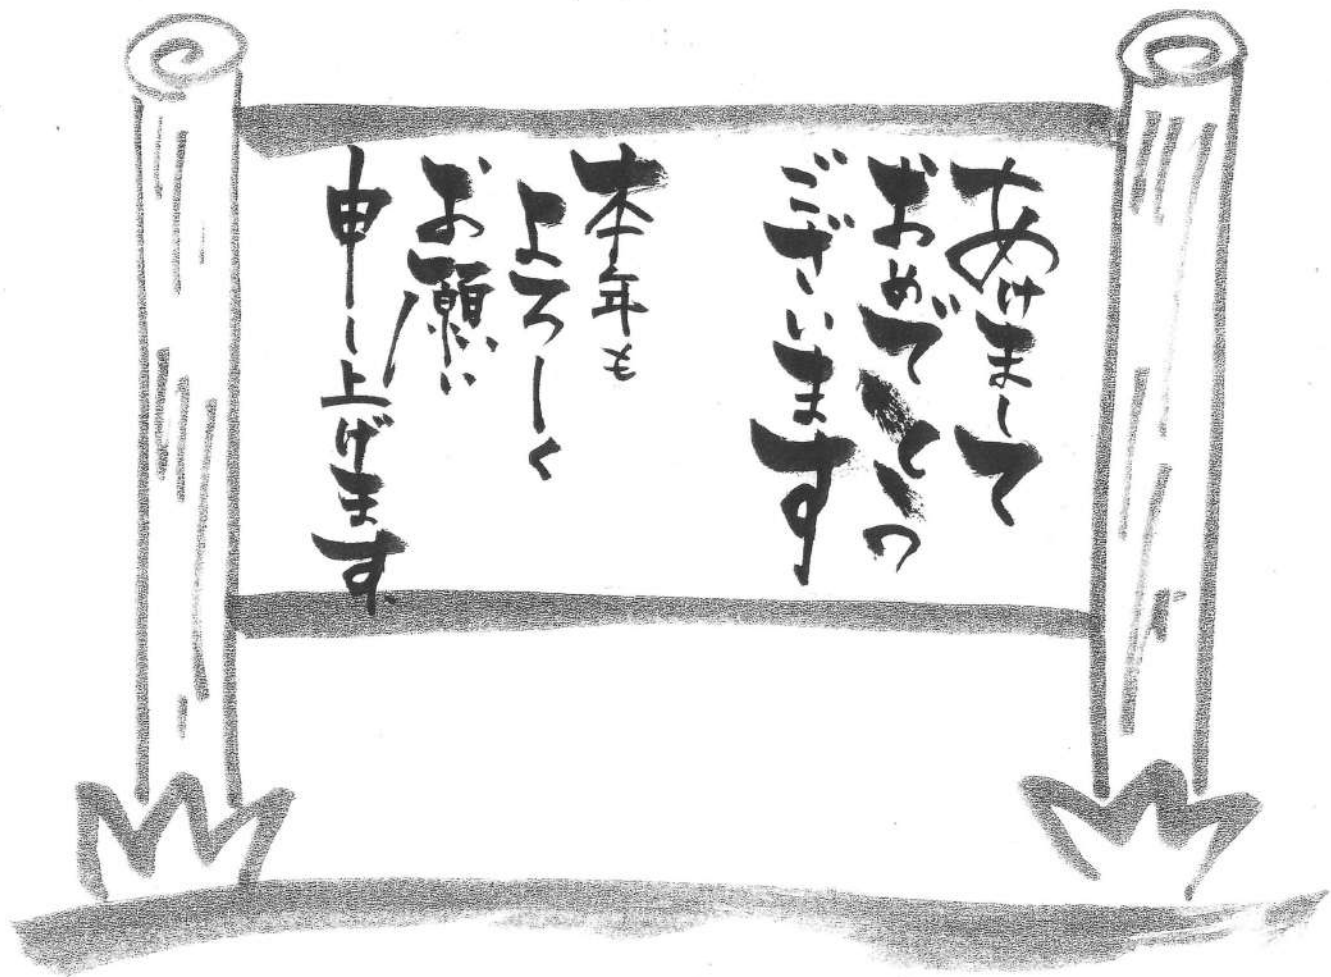 あけまして
おめでとう
ございます
本年も
よろしく
お願い
申し上げます